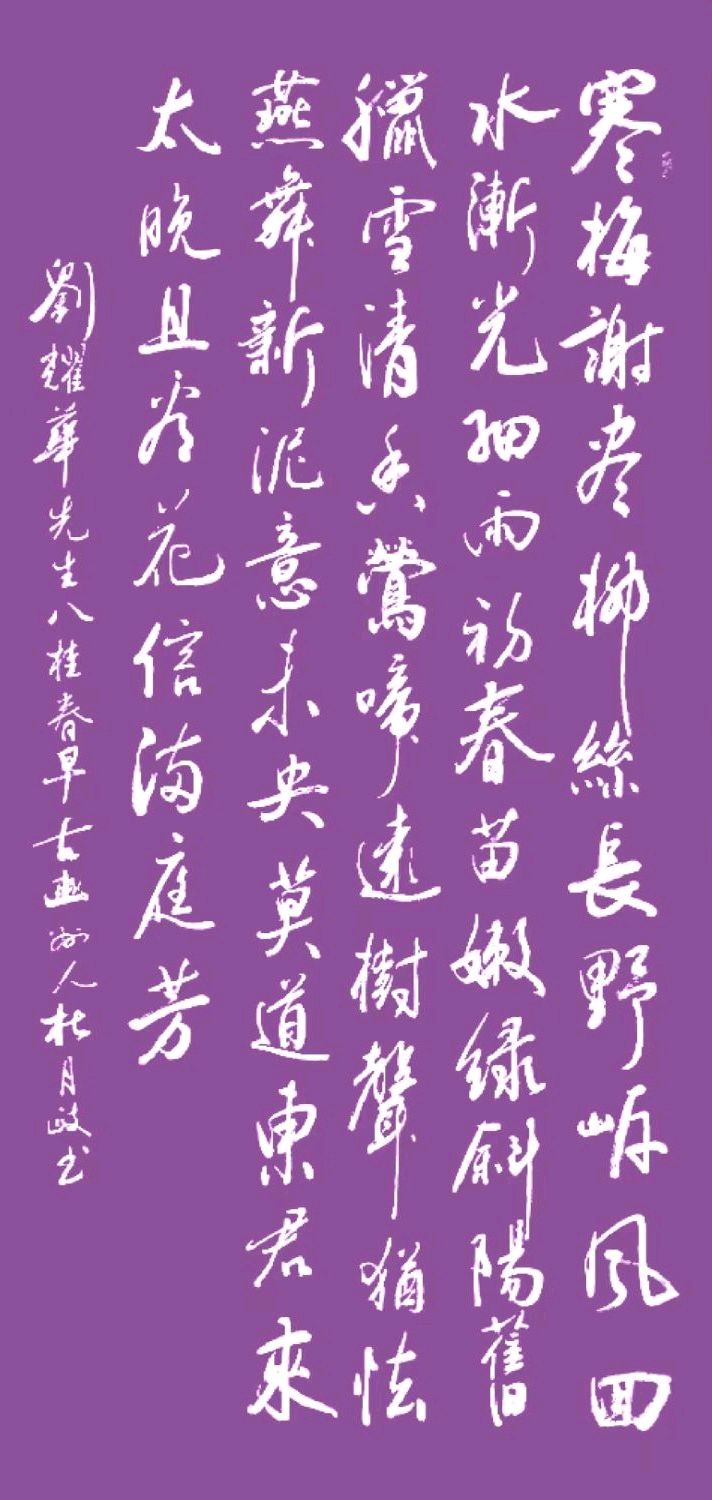 寒梅謝尽柳絲長野岍風回
水漸光細雨初春苗嫩绿斜陽舊
臘雪清香鶯啼遠樹聲猶怯
燕舞新泥意未央莫道東君來
太晚且看花信满庭芳
劉耀華先生八桂春早古幽州人杜月政书